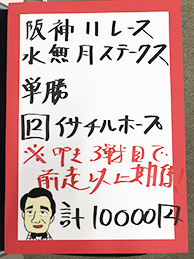 阪神11レース
水無月ステークス
単勝
12 イサチルホープ
※叩き3戦目で
前走以上効有!
計10000円